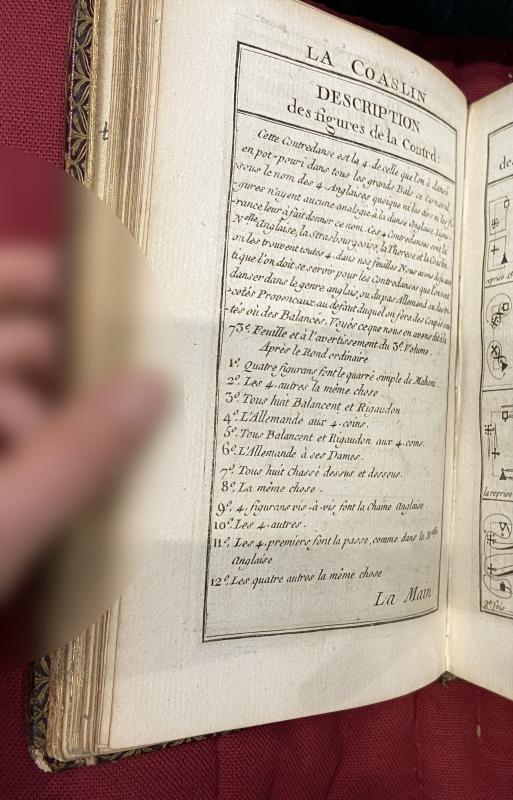 LA COASLIN
DESCRIPTION
des figures de la Contrd:
Cette Contredanse est la 4. de celle que l'on a dansé
en pot-pouri dans tous les grands Bals ce Carnaval
sous le nom des 4. Anglaises quoique ni les airs ni les
gures n'ayent aucune analogie à la danse Anglaise.
rance leur a fait donner ce nom. Ces 4 Contredanses sont la
Nelle Anglaise, la Strasbourgeoise, la Therese et la Coaslin
on les trouvent toutes 4. dans nos feuilles Nous avons
tique l'on doit se servir pour les Contredanses que l'on
danser dans le genre anglais, ou du pas Allemand ou des
cotés Provencaux au defaut duquel on fera des
tés où des Balancés. Voyés ce que nous en avons dit à la
73e. Feuille et à l'avertissement du 3e. Volume.
Après le Rond ordinaire
1o. Quatre figurans font le quarré simple de Mahoni.
2o. Les 4. autres la même chose
3o. Tous huit Balancent et Rigaudon
4o. L'Allemande aux 4. coins.
5o. Tous Balancent et Rigaudon aux 4. coins.
6o. L'Allemande à ses Dames.
7o. Tous huit Chassé dessus et dessous.
8o. La même chose.
9o. 4. figurans vis-à-vis font la Chaine Anglaise
10o. Les 4. autres.
11o. Les 4. premiers font la passe, comme dans la Nelle
Anglaise
12o. Les quatre autres la même chose
La Main
de
reprise
la reprise
2e fois